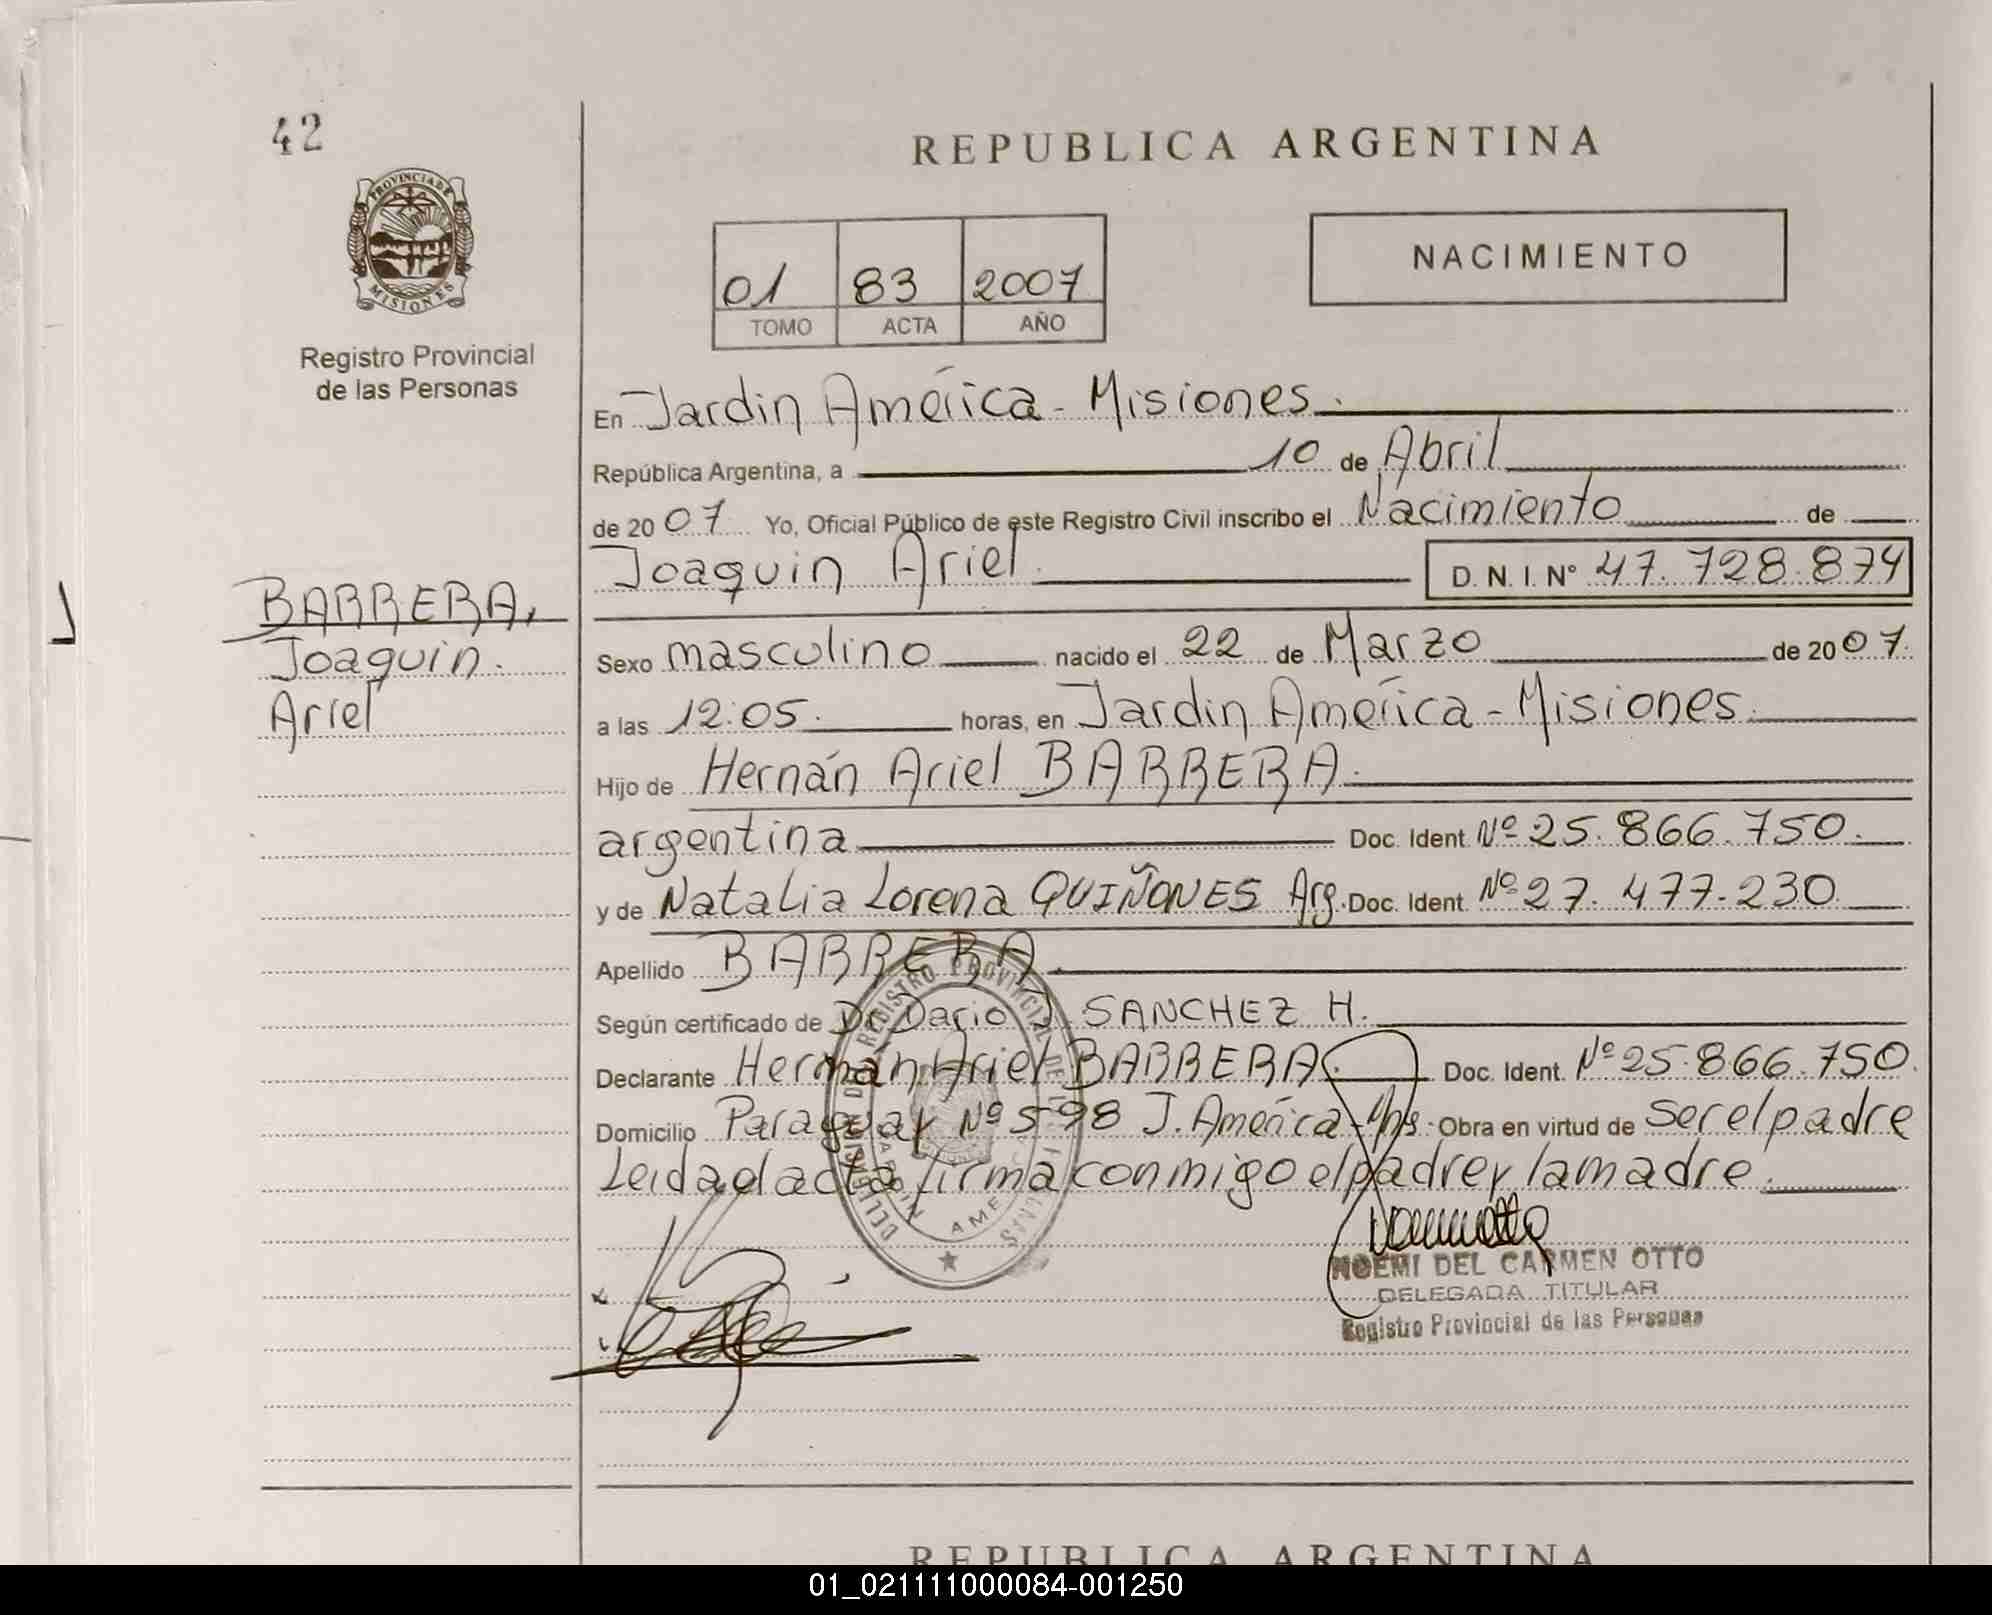 42
REPUBLICA ARGENTINA
PROVINCIA DE
MISIONES
Registro Provincial
de las Personas
01 83 2007
TOMO ACTA AÑO
NACIMIENTO
En Jardin América - Misiones.
República Argentina, a 10 de Abril
de 2007 Yo, Oficial Público de este Registro Civil inscribo el Nacimiento de
Joaquin Ariel. D.N.I. Nº 47.728.874
BARRERA,
Joaquin.
Ariel
Sexo masculino nacido el 22 de Marzo de 2007.
a las 12:05. horas, en Jardin América - Misiones.
Hijo de Hernán Ariel BARRERA.
argentina Doc. Ident. Nº 25.866.750.
y de Natalia Lorena QUIÑONES Arg. Doc. Ident. Nº 27.477.230
Apellido BARRERA.
Según certificado de Dr Dario J. SANCHEZ H.
Declarante Hernán Ariel BARRERA. Doc. Ident. Nº 25.866.750.
Domicilio Paraguay Nº 598 J. América - Mns. Obra en virtud de ser el padre
Leida el acta firma conmigo el padre y la madre.
NOEMI DEL CARMEN OTTO
DELEGADA TITULAR
Registro Provincial de las Personas
REPUBLICA ARGENTINA
01_021111000084-001250